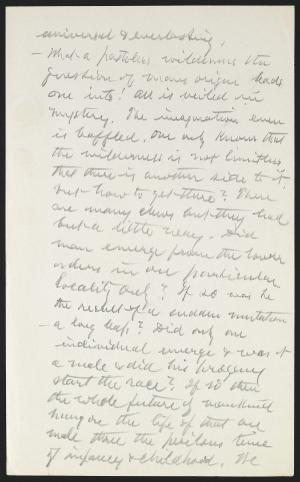 universal & everlasting,
— What a pathless wilderness the
question of mans origin leads
one into! All is veiled in
mystery. The imagination even
is baffled. One only knows that
the wilderness is not limitless,
that there is another side to it,
but how to get there? There
are many clews but they lead
but a little way. Did
man emerge from the lower
orders in one particular
locality only? If so was he
the result of a sudden mutation
— a long leap? Did only one
individual emerge & was it
a male & did his progeny
start the race? If so then
the whole future of mankind
hung on the life of that one
male thro the perilous time
of infancy & childhood. We